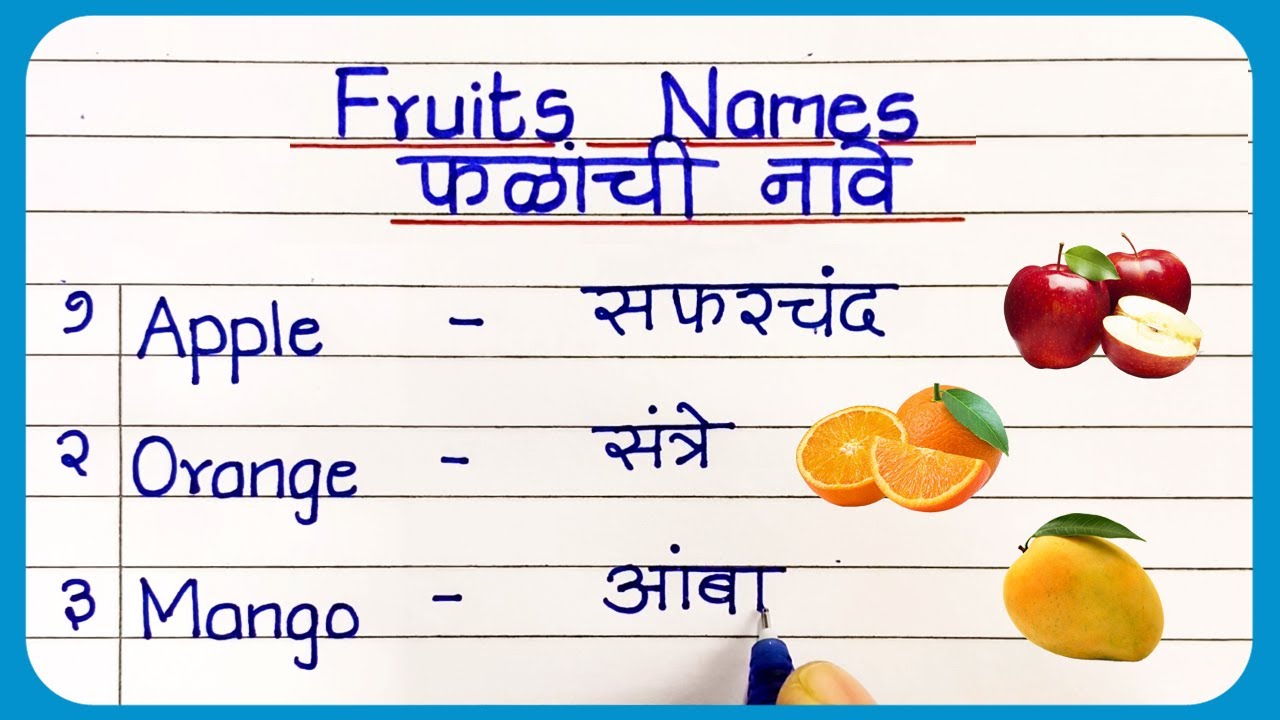 Fruits Names
फळांची नावे
१ Apple - सफरचंद
२ Orange - संत्रे
३ Mango - आंबा